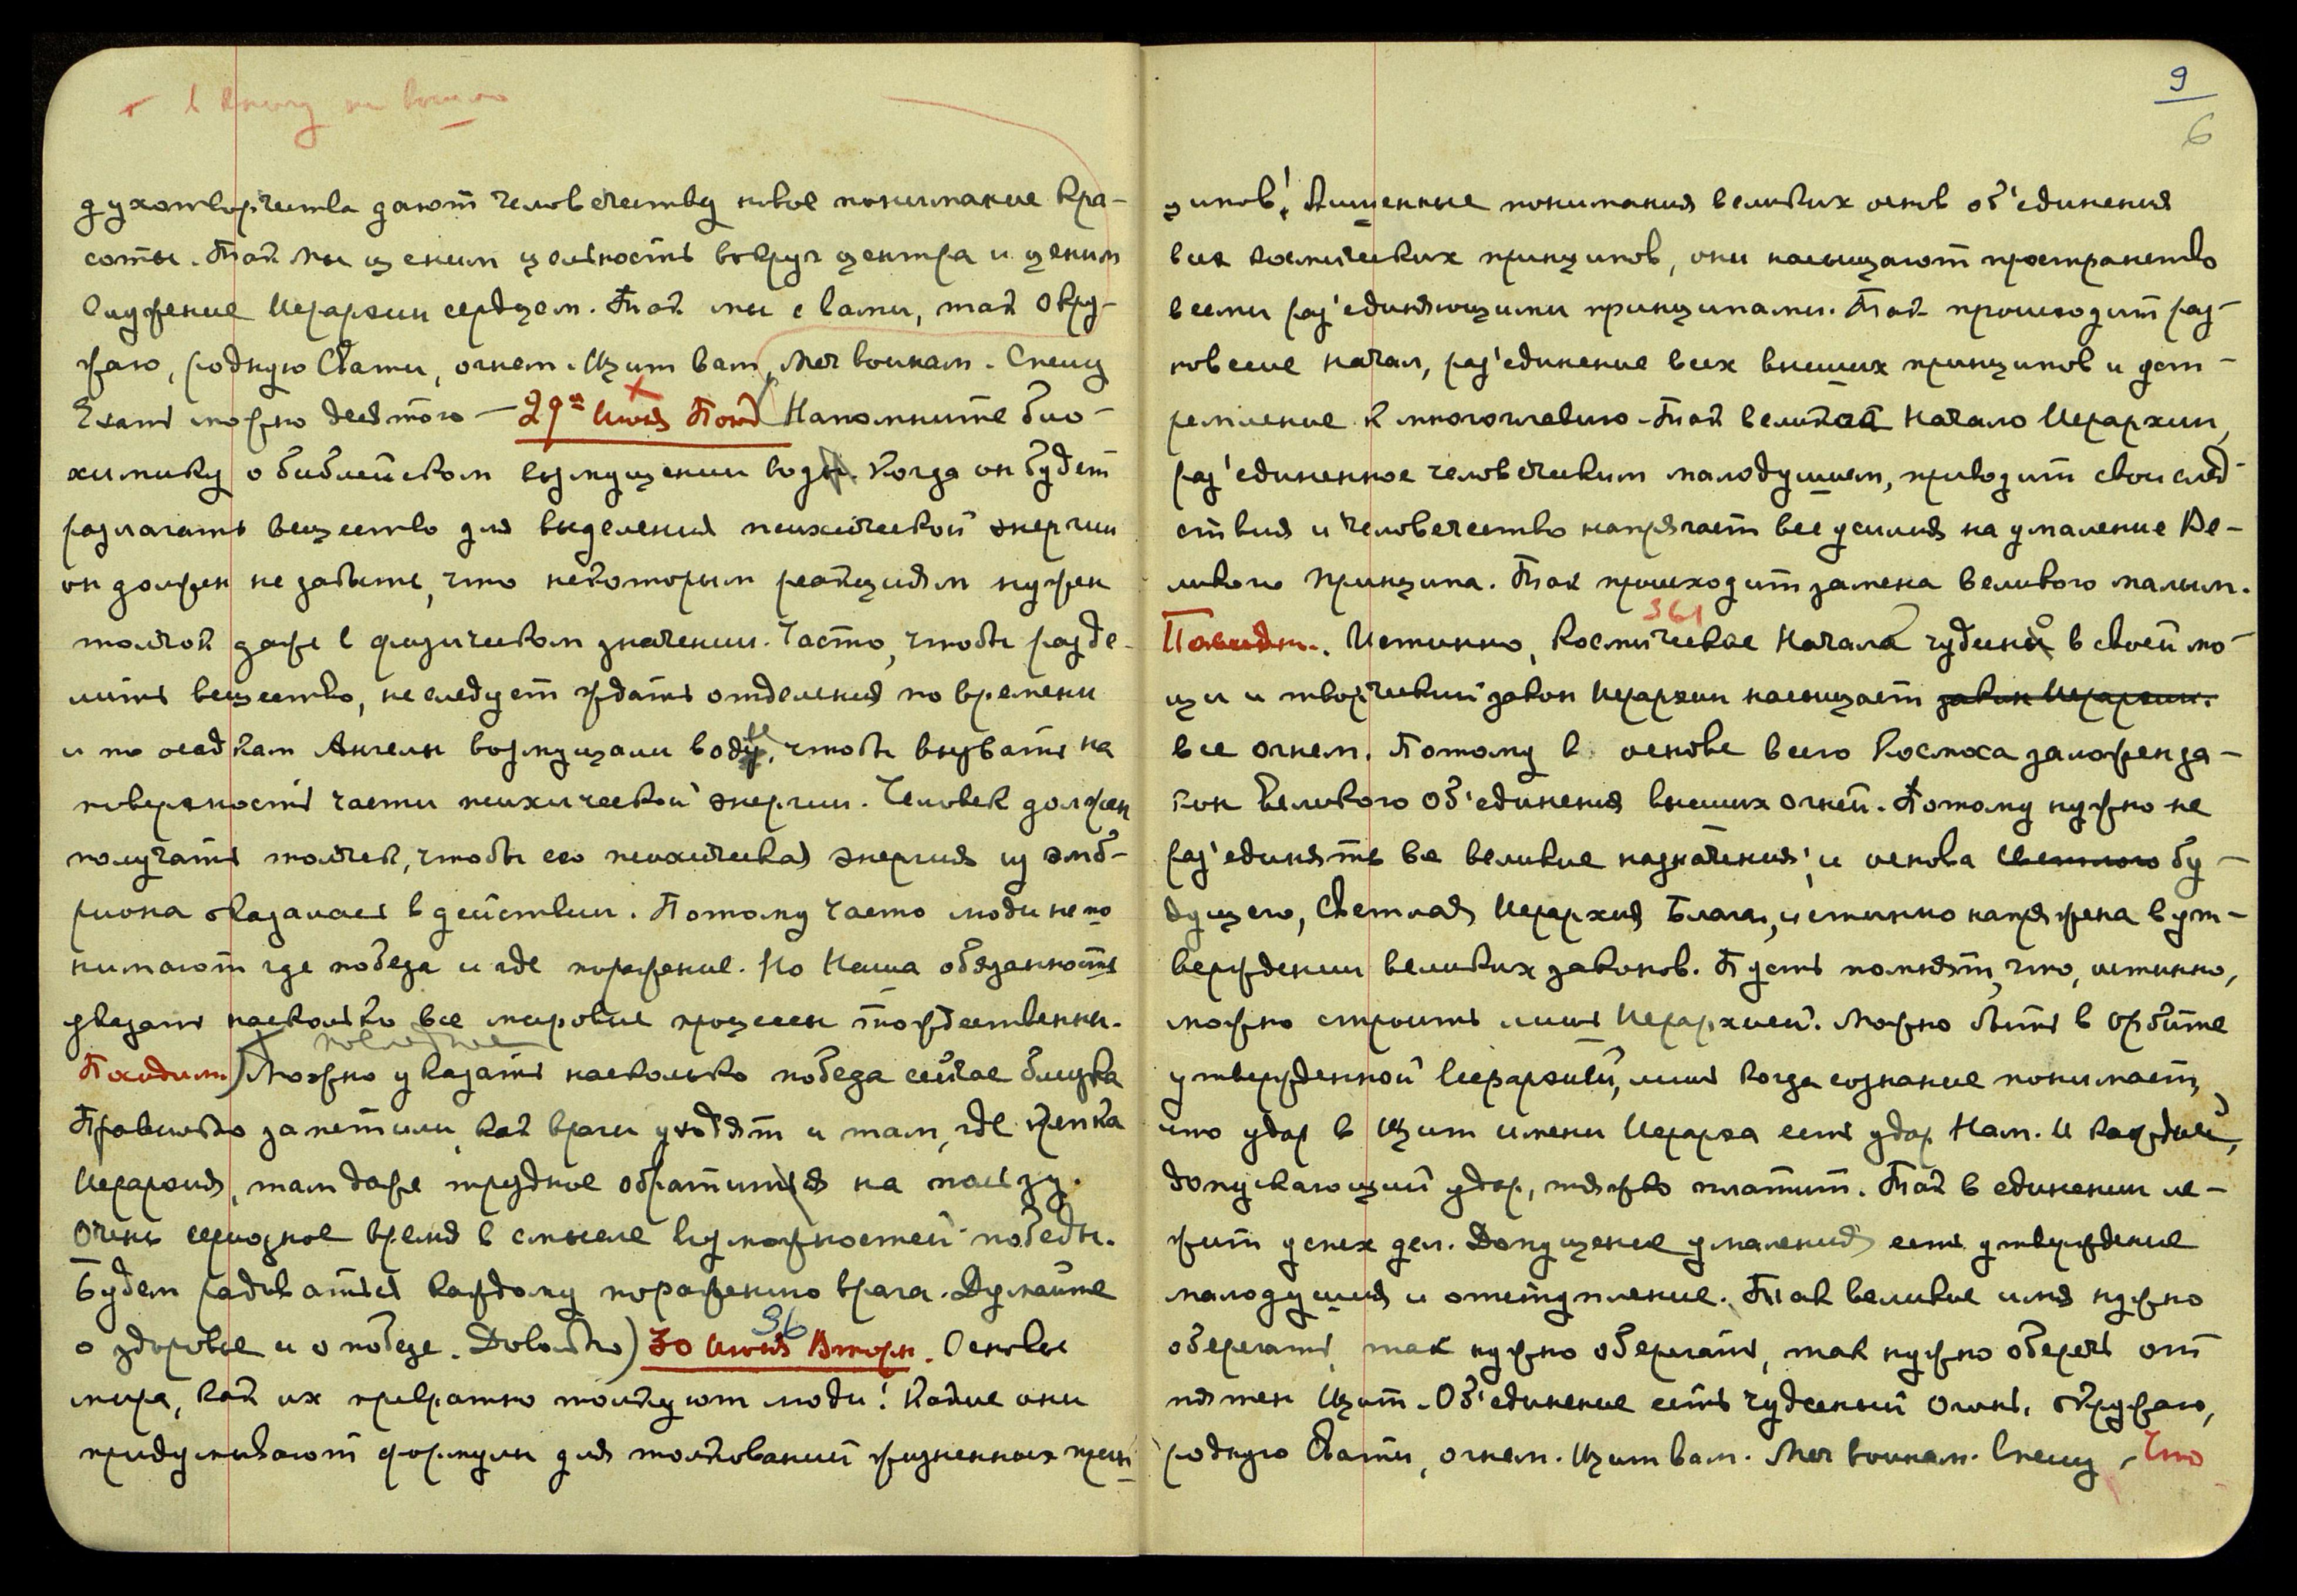 в книгу не вошло
духотворчества дают человечеству новое понимание кра-
соты. Так Мы ценим цельность вокруг центра и ценим
служение Иерархии сердцем. Так мы с вами, так окру-
жаю, родную Свати, огнем. Щит вам, меч воинам. Спешу
Ехать можно десятого — 29ᵒᵉ Июня Понд Напомните био-
химику о библейском возмущении воды. Когда он будет
разлагать вещество для выделения психической энергии
он должен не забыть, что некоторым реакциям нужен
толчок даже в физическом значении. Часто, чтобы разде-
лить вещество, не следует ждать отделения по времени
и по осадкам Ангелы возмущали воду, чтобы вызвать на
поверхность части психической энергии. Человек должен
получать толчек, чтобы его психическая энергия из эмб-
риона оказалась в действии. Потому часто люди не по
нимают где победа и где поражение. Но Наша обязанность
указать насколько все мировые процессы тождественны.
Походим) Можно указать насколько победа сейчас близка
Правильно заметили, как враги уходят и там, где крепка
Иерархия, там даже трудное обратится на пользу.
Очень сериозное время в смысле возможностей победы.
Будем радоваться каждому поражению врага. Думайте
о здоровье и о победе. Довольно) 30 Июня Вторн. Основы
36
мира, как их превратно толкуют люди! Какие они
придумывают формулы для толкований жизненных прин
9
6
ципов! Лишенные понимания великих основ об'единения
всех космических принципов, они насыщают пространство
всеми раз'единяющими принципами. Так происходит раз-
новесие начал, раз'единение всех высших принципов и уст-
ремление к многоглавию. Так великое Начало Иерархии,
раз'единенное человеческим малодушием, приводит свои след-
ствия и человечество напрягает все усилия на умаление Ве-
ликого Принципа. Так происходит замена великого малым.
361
Посидим. Истинно, Космическое Начало чудесно в своей мо-
щи и творческий закон Иерархии насыщает закон Иерархии.
все огнем. Потому в основе всего Космоса заложен за-
кон Великого Об'единения высших огней. Потому нужно не
раз'единять все великие назначения, и основа светлого бу-
дущего, Светлая Иерархия Блага, истинно напряжена в ут-
верждении великих законов. Пусть помнят, что, истинно,
можно строить лишь Иерархией. Можно быть в орбите
утвержденной Иерархией, лишь когда сознание понимает,
что удар в Щит имени Иерарха есть удар Нам. И каждый,
допускающий удар, тяжко платит. Так в единении ле-
жит успех дел. Допущение умаления есть утверждение
малодушия и отступление. Так великие имя нужно
оберегать, так нужно оберегать, так нужно оберечь от
пятен Щит. Об'единение есть чудесный огонь. Окружаю,
родную Свати, огнем. Щит вам. Меч воинам. Спешу - Что